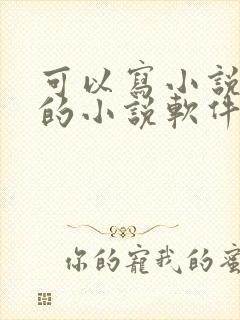 可以寫小説
的小説軟件
你的寵我的蜜